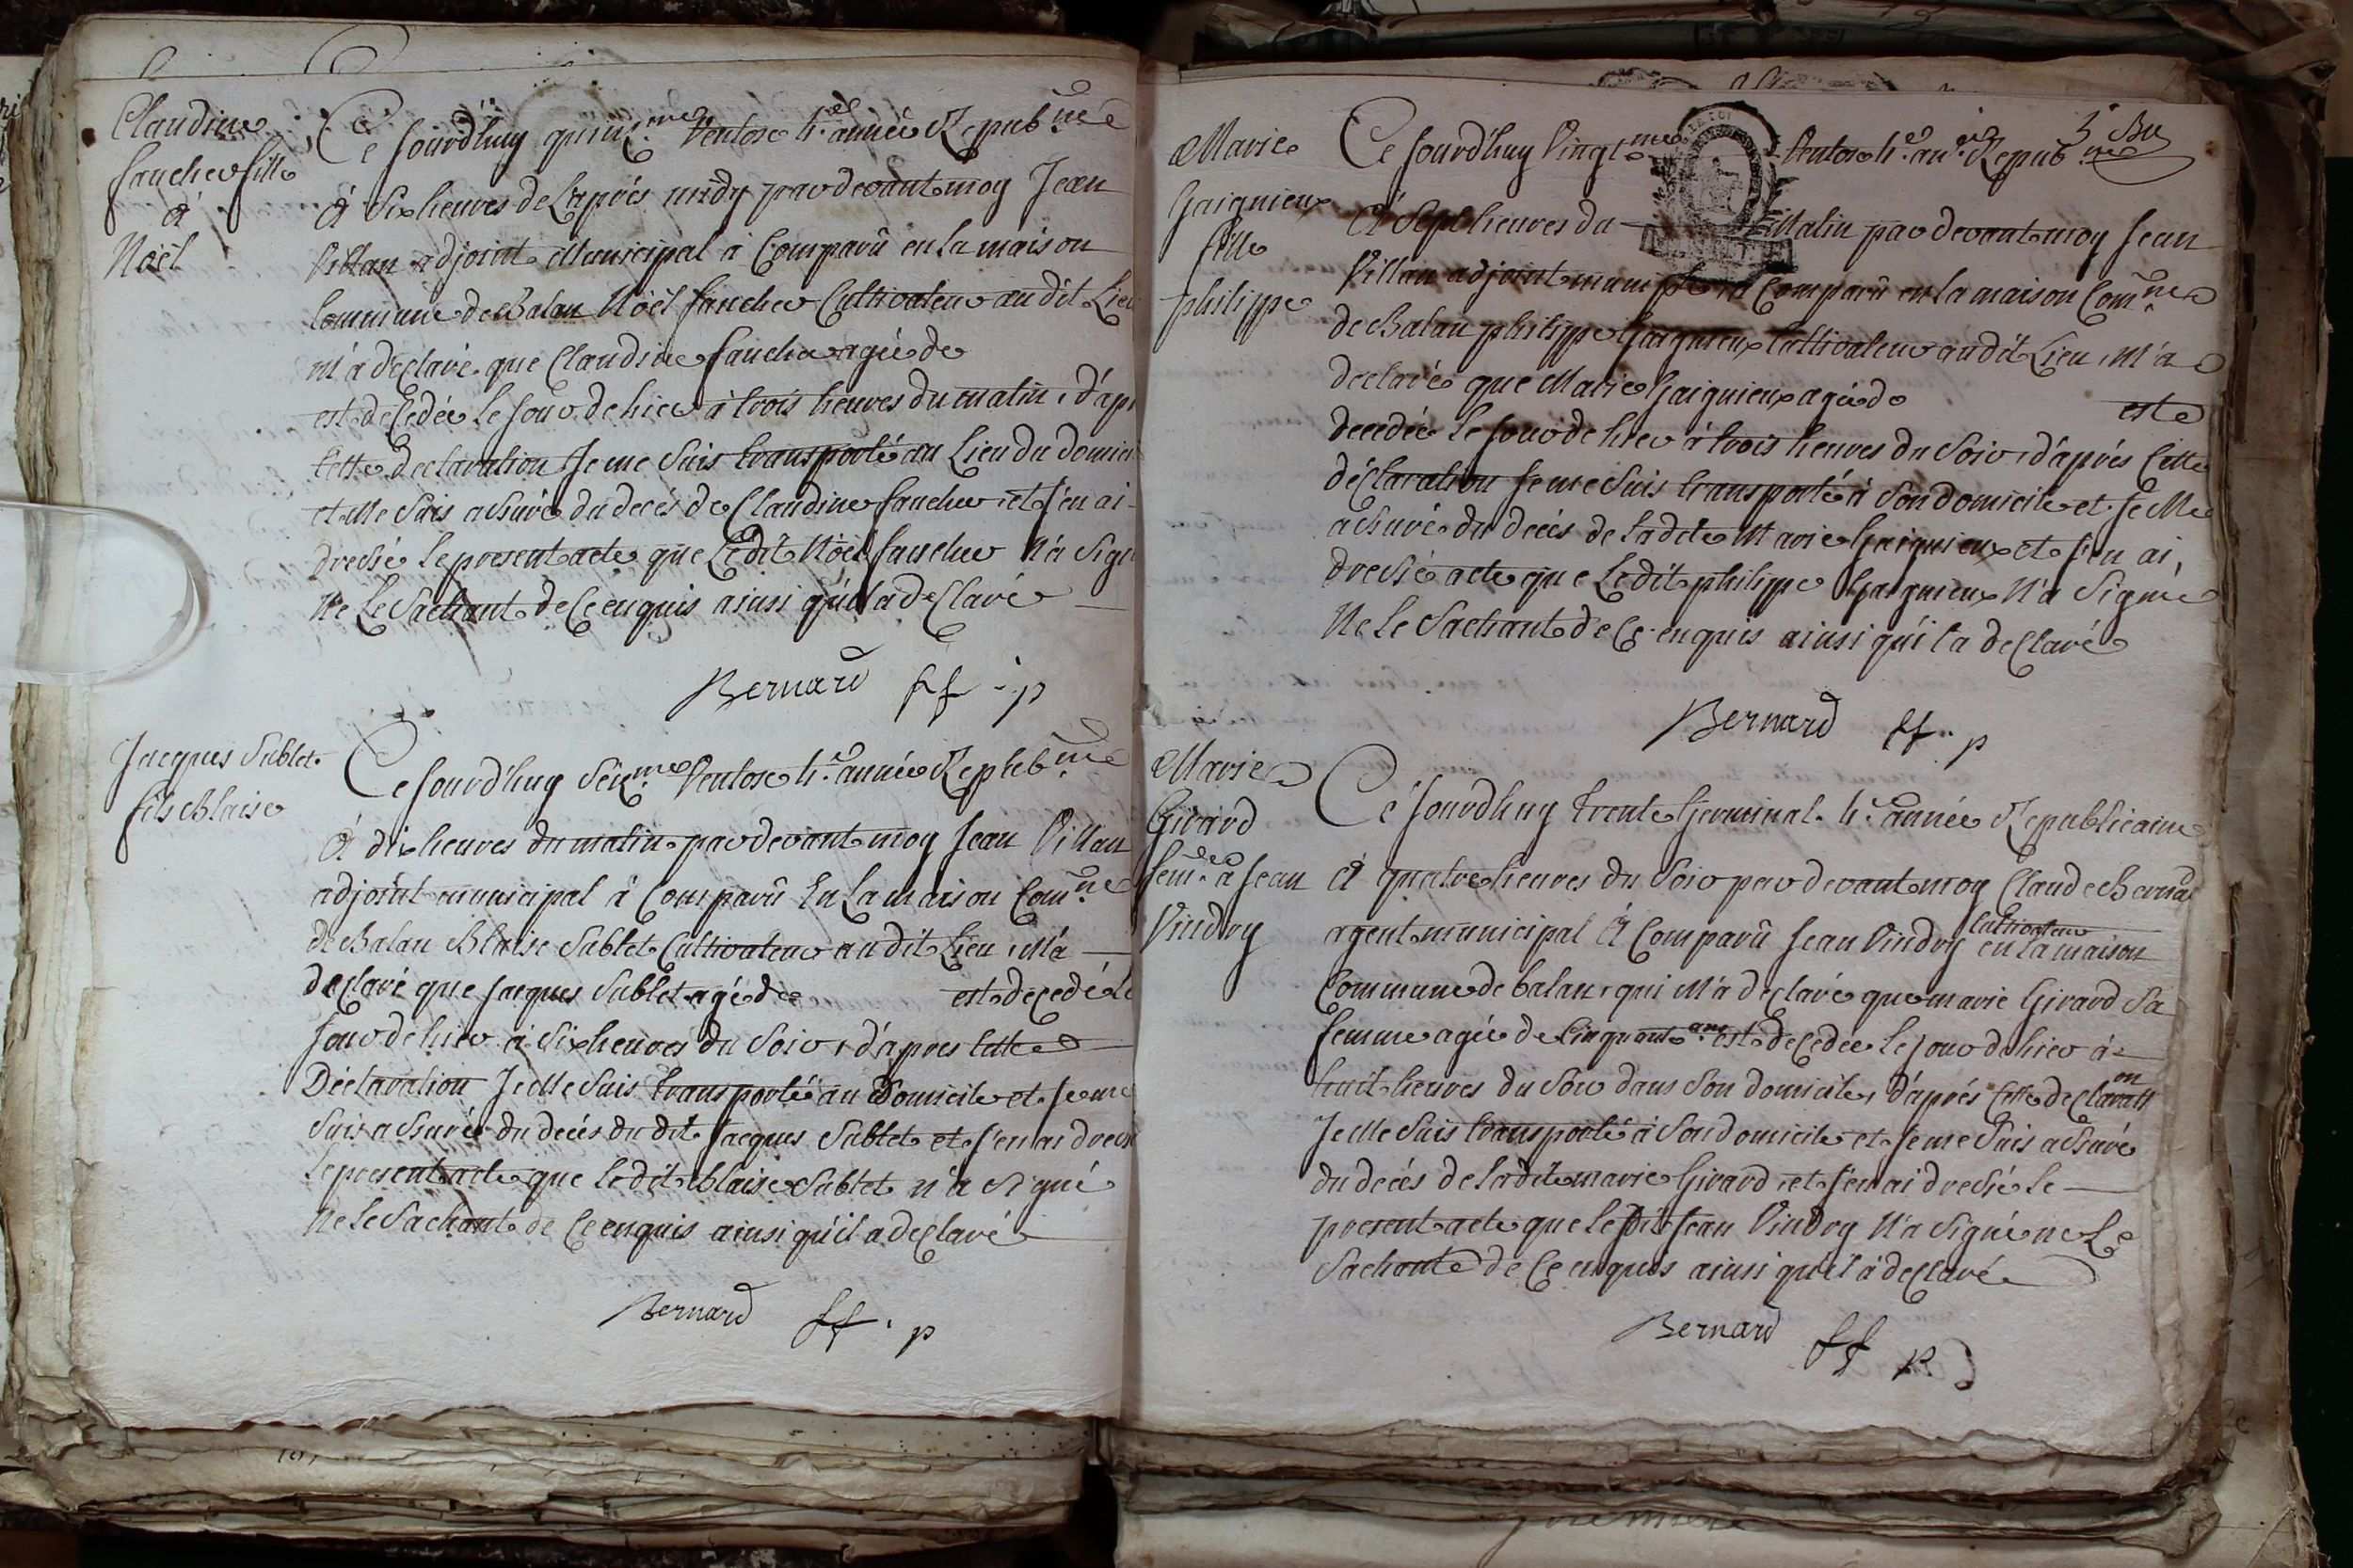 Claudine
fauche fille
à
Noël
Ce jourd'huy quinz.me Ventose 4.e année Repub.ne
à Six heures de laprés midy par devant moy Jean
Villan adjoint Municipal à Comparû en la maison
Commune de Balan Noël fauche Cultivateur au dit Lieu
m'à déclaré que Claudine fauche agée de
est déCédée le jour de hier à trois heures du matin, d'apr
Cette declaration Je me Suis transporté au Lieu du domici
et Me Suis assuré du decés de Claudine fauche, et j'en ai
dressé le present acte que Ledit Noël fauche N'a Sign
Ne Le Sachant de Ce enquis ainsi qu'il a deClaré
Bernard ff. p
Jacques Sublet
fils Blaise
Ce jourd'huy Seiz.me Ventose 4.e année Repbeb.ne
à dix heures du matin par devant moy Jean Villan
adjoint municipal à Comparû En La maison Com.ne
de Balan Blaise Sublet Cultivateur au dit Lieu, M'a
deClaré que jacques Sublet agé de est décedé Le
jour de hier à Six heures du Soir, d'apres Cette
Déclaration Je Me Suis transporté au Domicile et Je me
Suis assuré du decés du dit jacques Sublet et j'en ai dress
le present acte que ledit blaise Sublet n'a signé
Ne le Sachant de Ce enquis ainsi qu'il a deClaré
Bernard ff. p
Marie
Gaignieux
fille
philippe
Ce jourd'huy Vingt.me Ventose 4.e an.e Repub.ne
à Sept heures du Matin par devant moy jean
Villan adjoint municipal à Comparû en la maison Com.ne
de Balan philippe Gaignieux Cultivateur au dit Lieu, M'a
declaré que Marie Gaignieux agée de est
decedée le jour de hier à trois heures du Soir, d'aprés Cette
déClaration je me Suis transporté à Son domicile et je Me
assuré du decés de ladite Marie Gaignieux et j'en ai,
dressé acte que Ledit philippe Gaignieux N'a Signé
Ne le Sachant de Ce enquis ainsi qu'il a deClaré
Bernard ff. p
Marie
Girard
fem.e à Jean
Vindry
Ce jourd'huy trente Germinal 4.e année Republicaine
à quatre heures du Soir par devant moy Claude Bernard
agent municipal à Comparû Jean Vindry Cultivateur en la maison
Commune de balan, qui M'à déclaré que marie Girard Sa
femme agée de Cinquante ans est deCedée le jour de hier à
huit heures du Soir dans Son domicile, d'aprés Cette deClaration
Je Me Suis transporté à Son domicile et je me Suis assuré
du decés de ladite marie Girard, et j'en ai dressé le
present acte que le dit Jean Vindry N'a Signé ne Le
Sachant de Ce enquis ainsi qu'il à deClaré
Bernard ff p